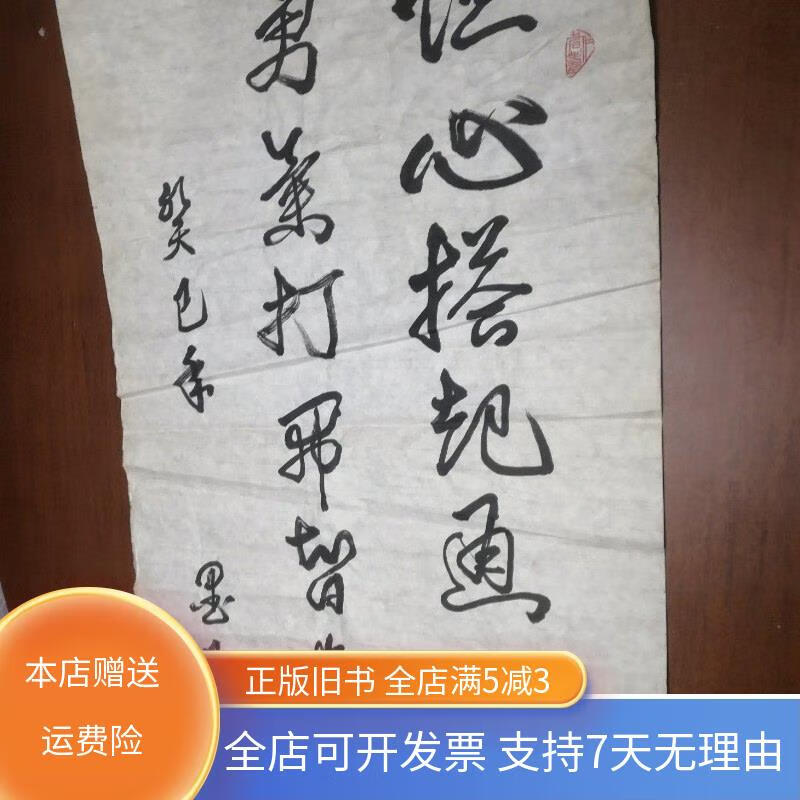 恒心搭起通
打開智
癸巳年
墨
本店赠送
运费险
正版旧书 全店满5减3
全店可开发票 支持7天无理由